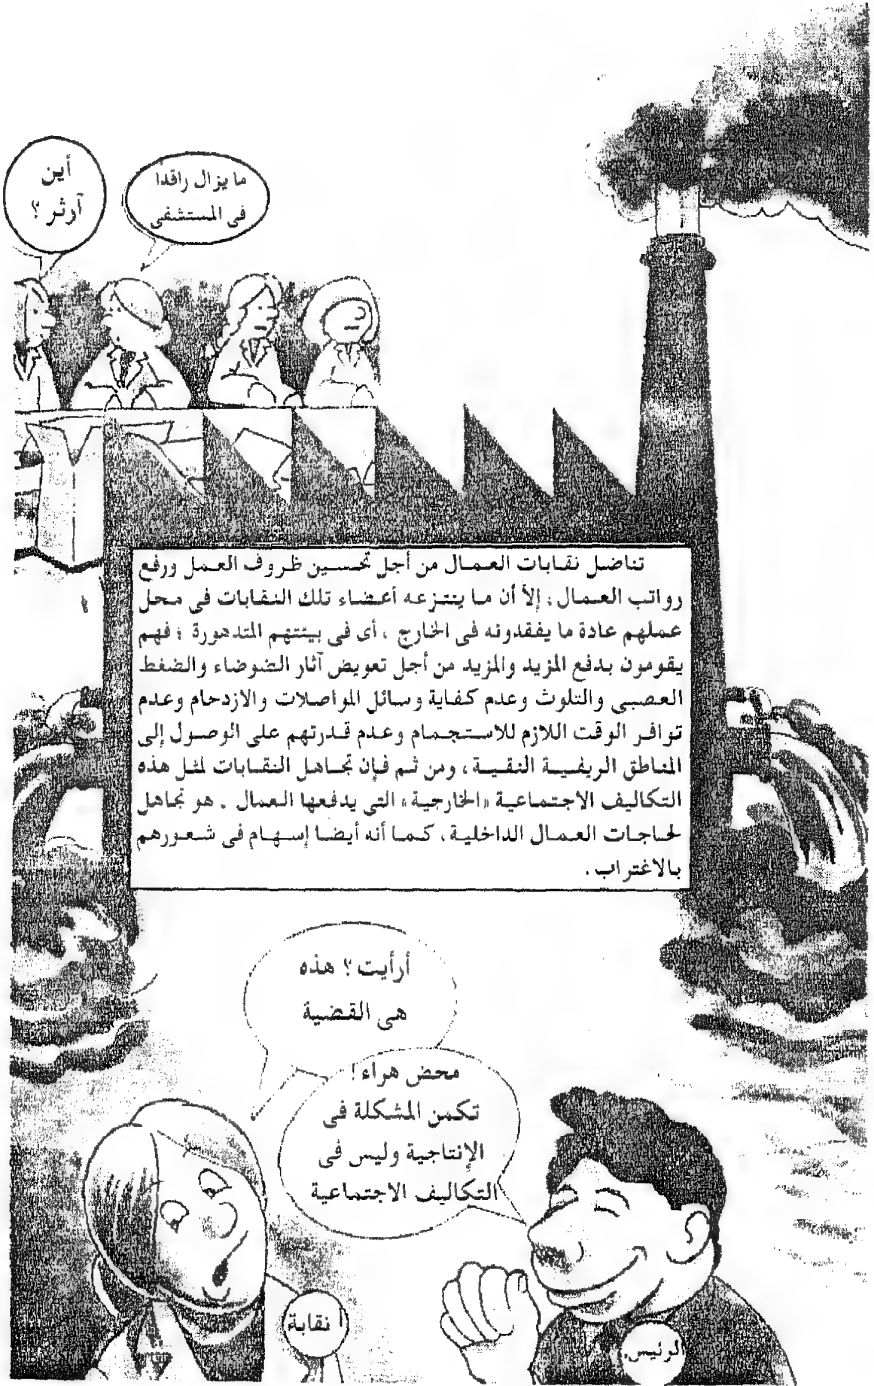 أين
آرثر ؟
ما يزال راقدا
فى المستشفى
تناضل نقابات العمال من أجل تحسين ظروف العمل ورفع
رواتب العمال ؛ إلاّ أن ما ينتزعه أعضاء تلك النقابات فى محل
عملهم عادة ما يفقدونه فى الخارج ، أى فى بيئتهم المتدهورة ؛ فهم
يقومون بدفع المزيد والمزيد من أجل تعويض آثار الضوضاء والضغط
العصبى والتلوث وعدم كفاية وسائل المواصلات والازدحام وعدم
توافر الوقت اللازم للاستجمام وعدم قدرتهم على الوصول إلى
المناطق الريفية النقية ، ومن ثم فإن تجاهل النقابات لمثل هذه
التكاليف الاجتماعية «الخارجية» التى يدفعها العمال . هو تجاهل
لحاجات العمال الداخلية ، كما أنه أيضا إسهام فى شعورهم
بالاغتراب .
أرأيت ؟ هذه
هى القضية
محض هراء !
تكمن المشكلة فى
الإنتاجية وليس فى
التكاليف الاجتماعية
نقابة
الرئيس